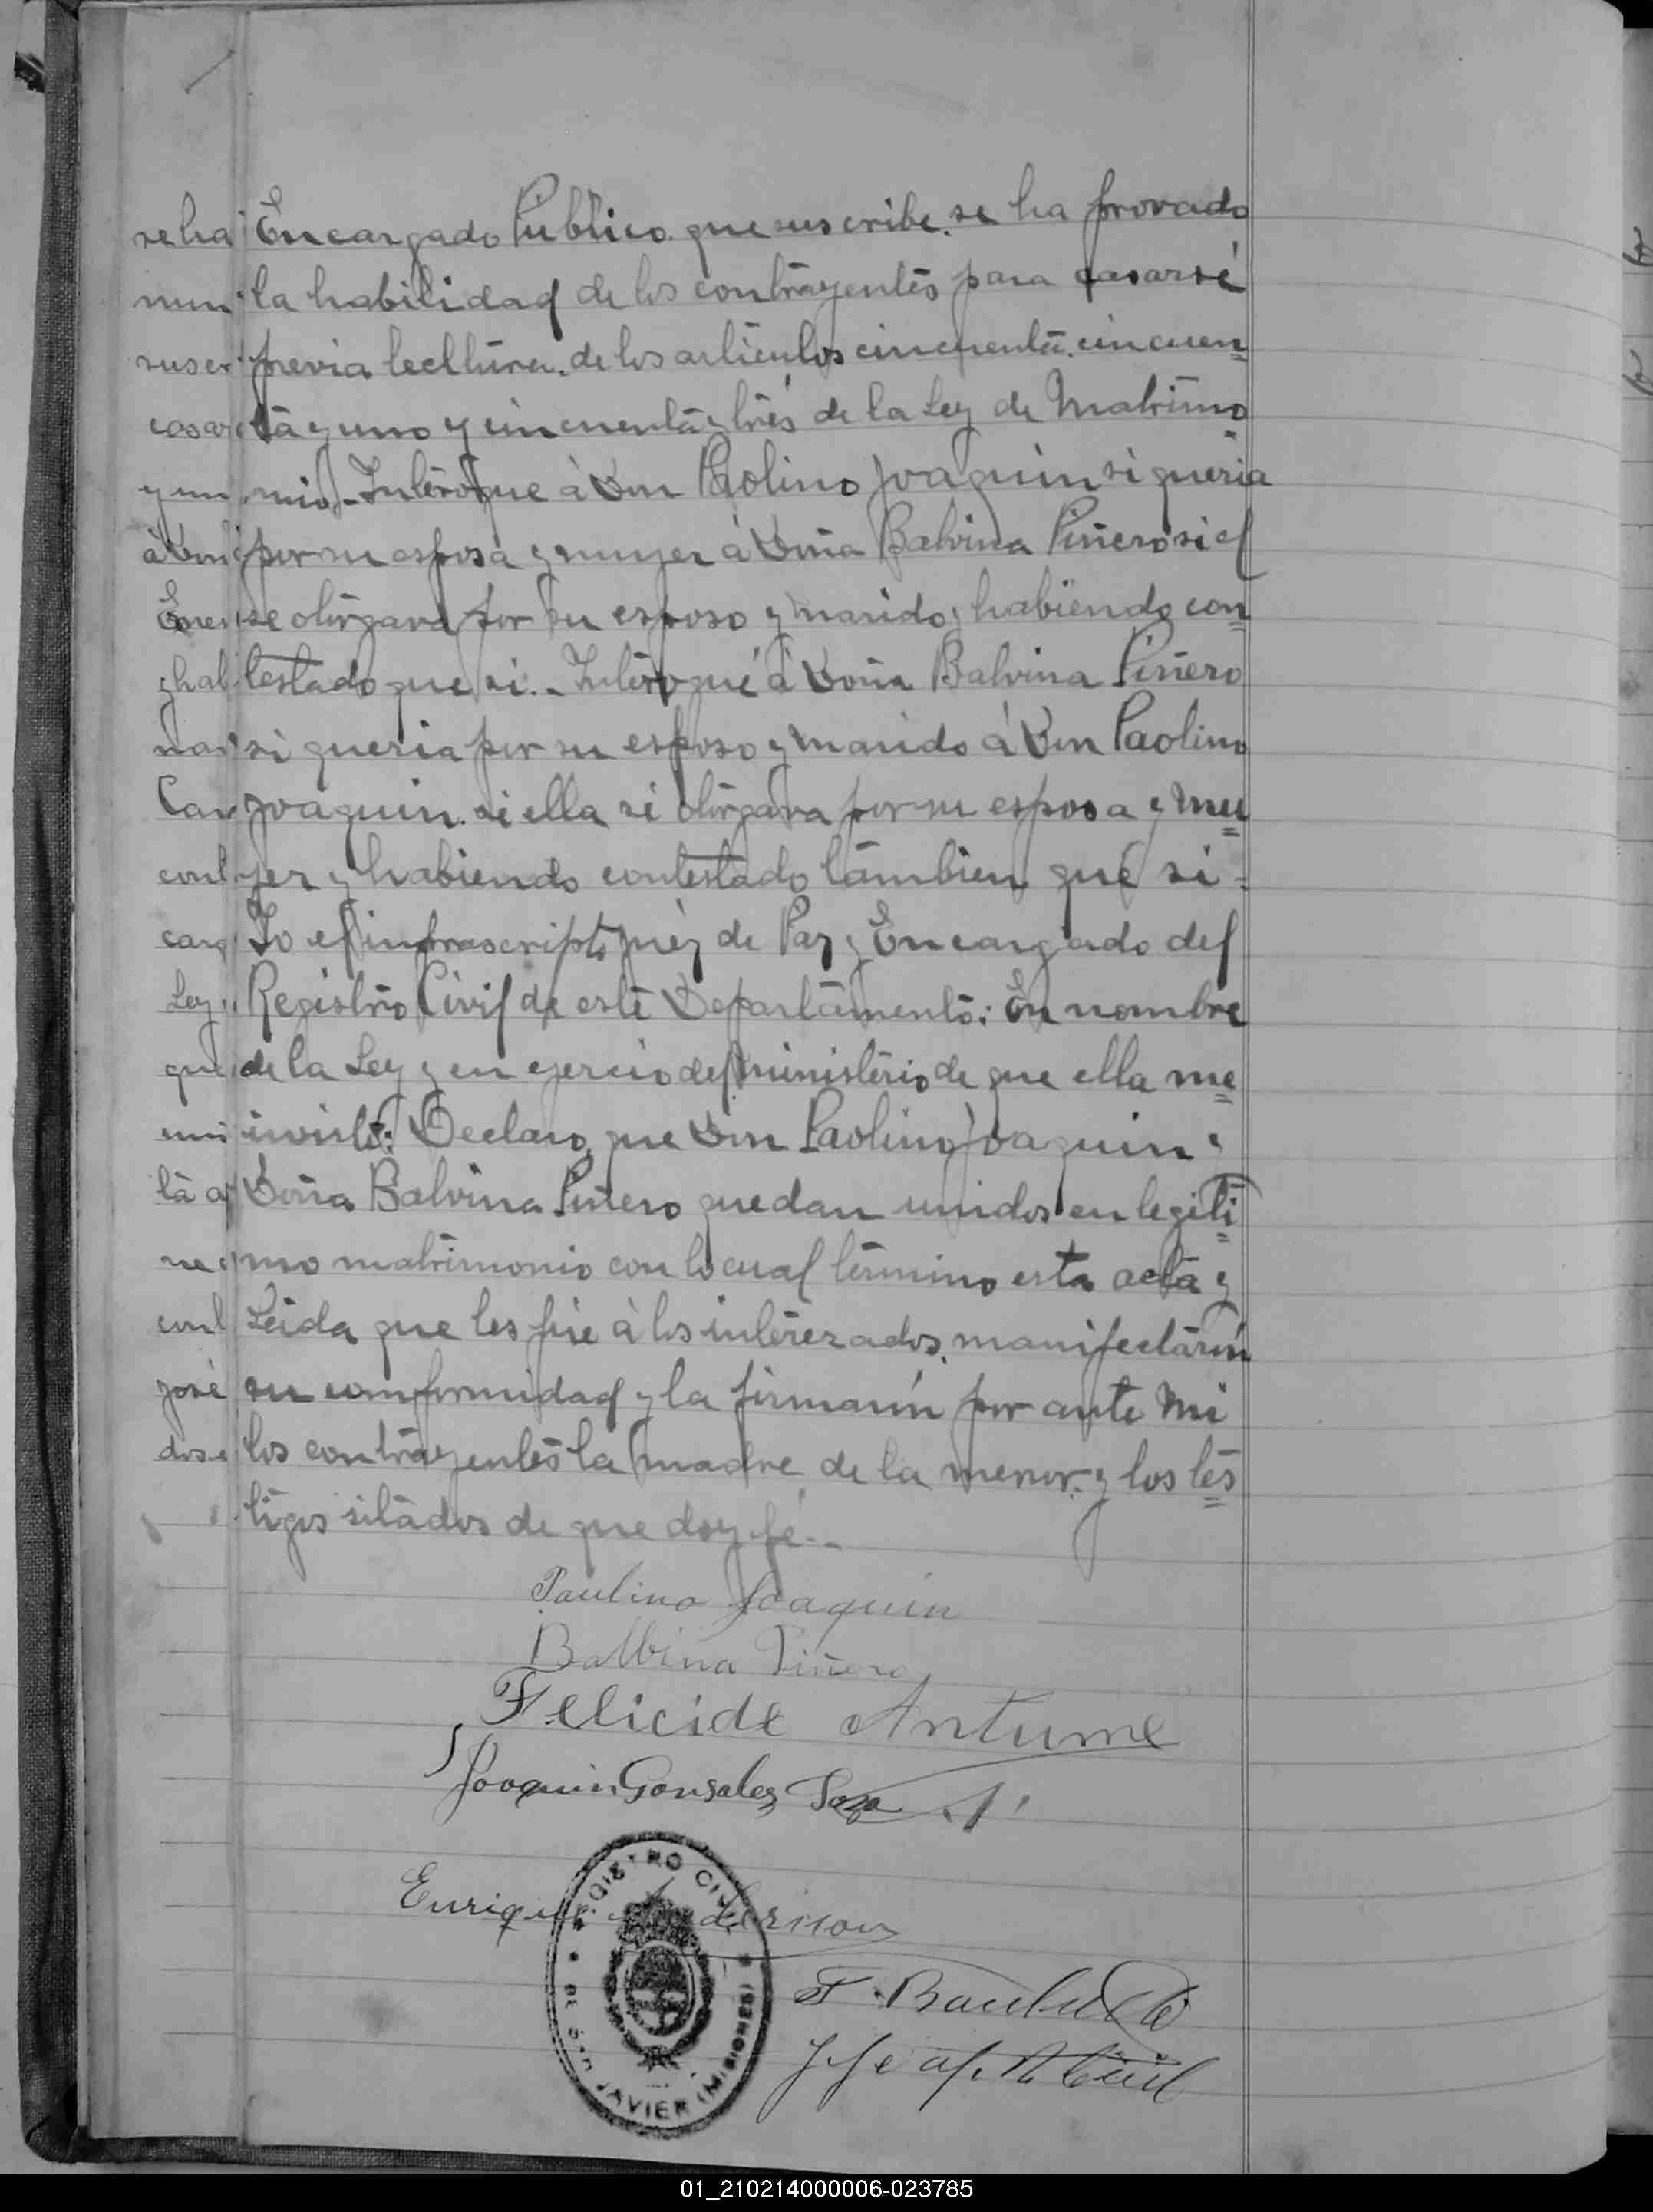 Encargado Público que suscribe. se ha provado
la habilidad de los contrayentes para casarsé
previa lecttura de los articulos cincuenta. cincuen=
ta y uno y cincuenta y tres de la Ley de Matrimo
nio.- Interoque à Don Paolino Joaquin si queria
por su esposa y muyer à Doña Balvina Piñero si el
se otorgava por su esposo y marido y habiendo con=
testado que si.- Interoqué à Doña Balvina Piñero
si queria por su esposo y marido à Don Paolino
Joaquin. si ella si otorgava por su esposa y mu=
yer y habiendo contestado tambien que si=
Yo el infrascripto juéz de Paz y Encargado del
Registro Civil de este Departamento: En nombre
de la Ley y en ejercio del ministerio de que ella me=
inviste: Declaro que Don Paolino Joaquin y
Doña Balvina Piñero quedan unidos en legiti=
mo matrimonio con lo cual termino esta acta y
Leida que les fue à los interezados, manifectarón
su comformidad y la firmarón por ante mi
los contrayentes la madre de la menor y los tes=
tigos sitados de que doy fé.-
se ha
nun
suscr
casar
y un
à Don
Ener
y hab
mar
Car
cont
carg
Ley
que
uni
ta a
ne
cont
José
dos
Paulino Joaquin
Balbina Piñero
Felicide Antune
Joaquin Gonsalez Soza
Enrique
REGISTRO CIVIL
DE SAN JAVIER (MISIONES)
Jefe del R Civil
01_210214000006-023785